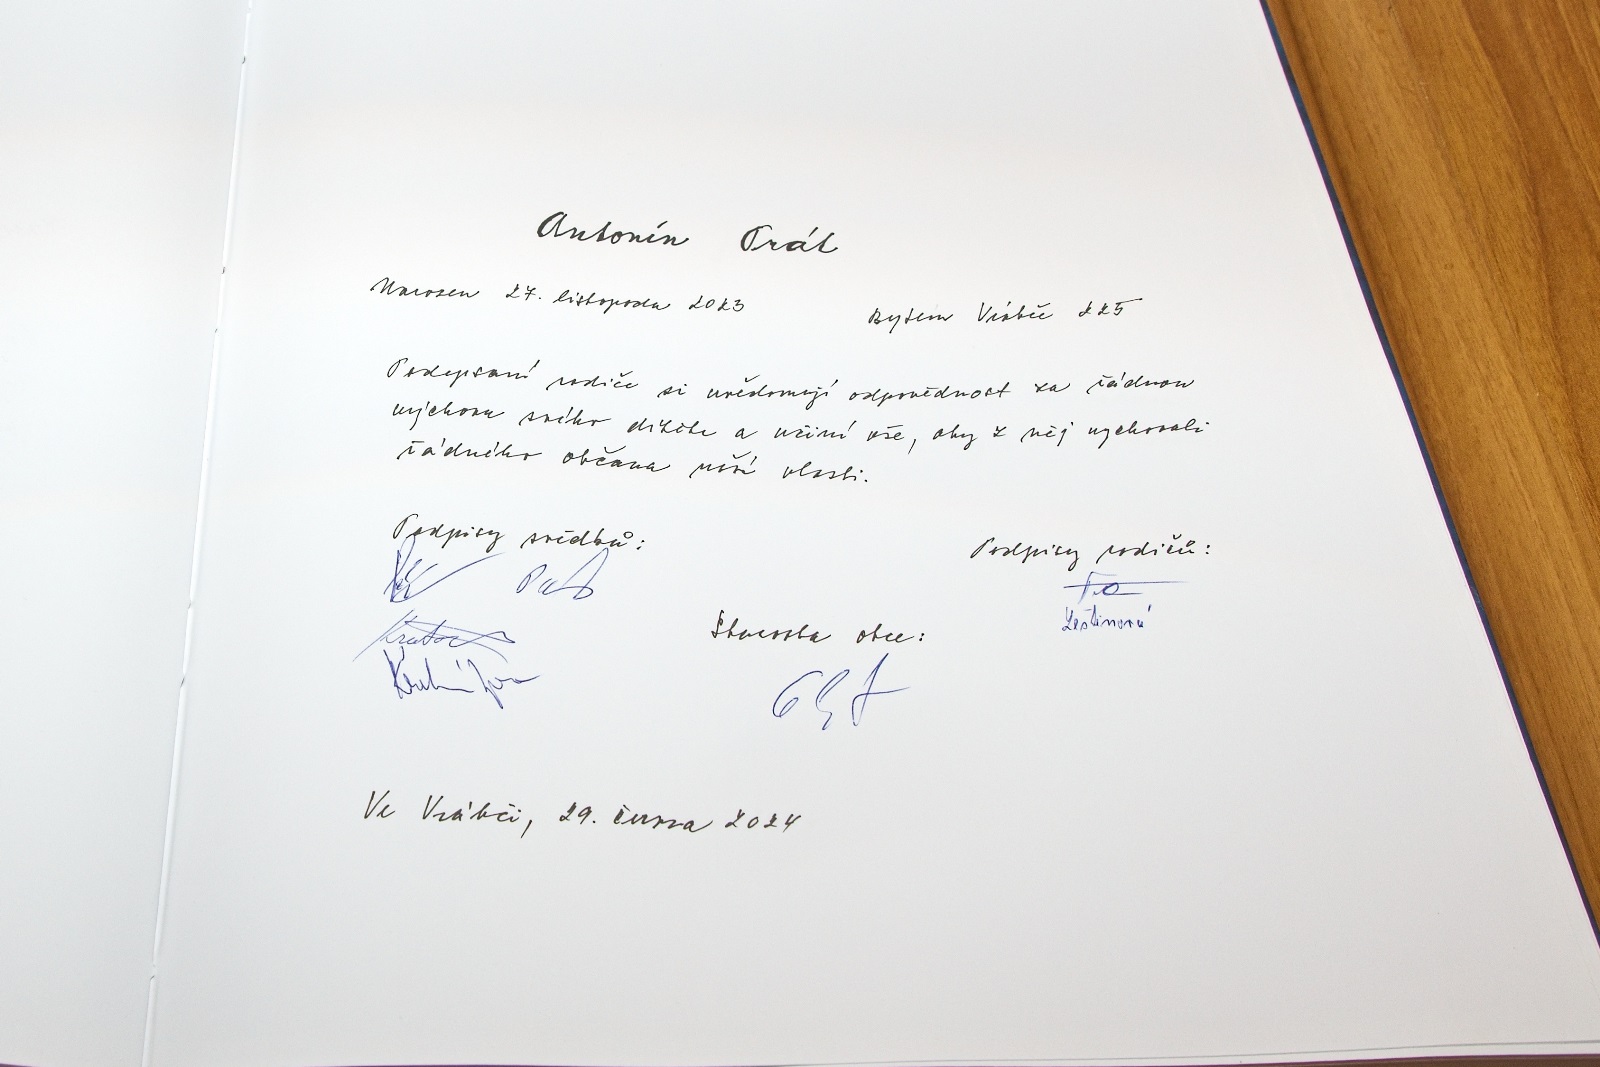 Antonín Trát
Narozen 27. listopadu 2023
Bytem Vrábče 225
Podepsaní rodiče si uvědomují odpovědnost za řádnou
výchovu svého dítěte a učiní vše, aby z něj vychovali
řádného občana naší vlasti.
Podpisy svědků:
Podpisy rodičů:
Leština
Starosta obce:
Ve Vrábči, 29. června 2024